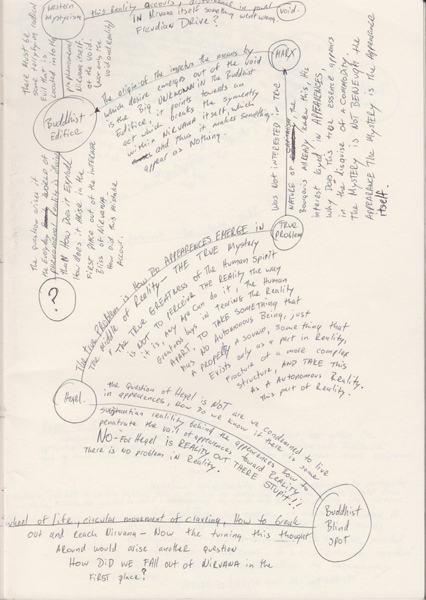 Western
Mysticism
this Reality occurs,
in Nirvana itself something went wrong.
FREUDIAN DRIVE?
void.
Buddhist
Edifice
The origin of the impetus the means by
which desire emerges out of the void
is the BIG UNKNOWN IN the Buddhist
Edifice, it points towards an
act which breaks the symmetry
within NIRVANA itself which
and thus it makes something
appear as NOTHING.
MARX
WAS NOT INTERESTED IN TRUE
NATURE OF the
Bourgeois ALREADY knew this, His
interest layed in APPEARENCES
WHY DOES this true essence appears
in the disguise of a COMMODITY.
THE MYSTERY IS NOT BENEUGH THE
APPEARANCE THE MYSTERY is THE Appearance
itself.
TRUE
PROBLEM
The question arises if
the Everyday WORLD OF
How DOES it EXPLODE
How does it ARISE in the
FIRST PLACE out of the INFERIOR
Bliss of NIRVANA
How DID this mistake
Occur.
?
The true Problem is How Do APPEARENCES EMERGE IN
The Middle of Reality - THE TRUE Mystery
THE TRUE GREATNESS of The Human Spirit
is NOT To PERCEIVE THE REALITY THE WAY
it is, Any Ape CAN do it, the Human
Greatnes lays in tearing THE Reality
APART. TO TAKE SOMETHING that
HAS NO AUTONOMOUS Being, just
A PROPERTY A SOUND, Something that
Exists only as a part in Reality,
Fracture of a more complex
STRUCTURE, AND TAKE THIS
AS A AUTONOMOUS Reality.
this part of Reality.
Hegel.
the Question of Hegel is NOT are we condemned to live
in appearences, How do we know if there is some
substantian realility behind the appearences how to
penetrate the vail of appearences toward REALITY
NO- For Hegel is REALITY OUT THERE STUPIT!!
There is NO problem in Reality.
Buddhist
Blind
spot
wheel of life, circular movement of claving, How to break
out and reach Nirvana - Now the turning this thought
Around would arise another question
HOW DID WE FALL out of NIRVANA in the
FIRST place?